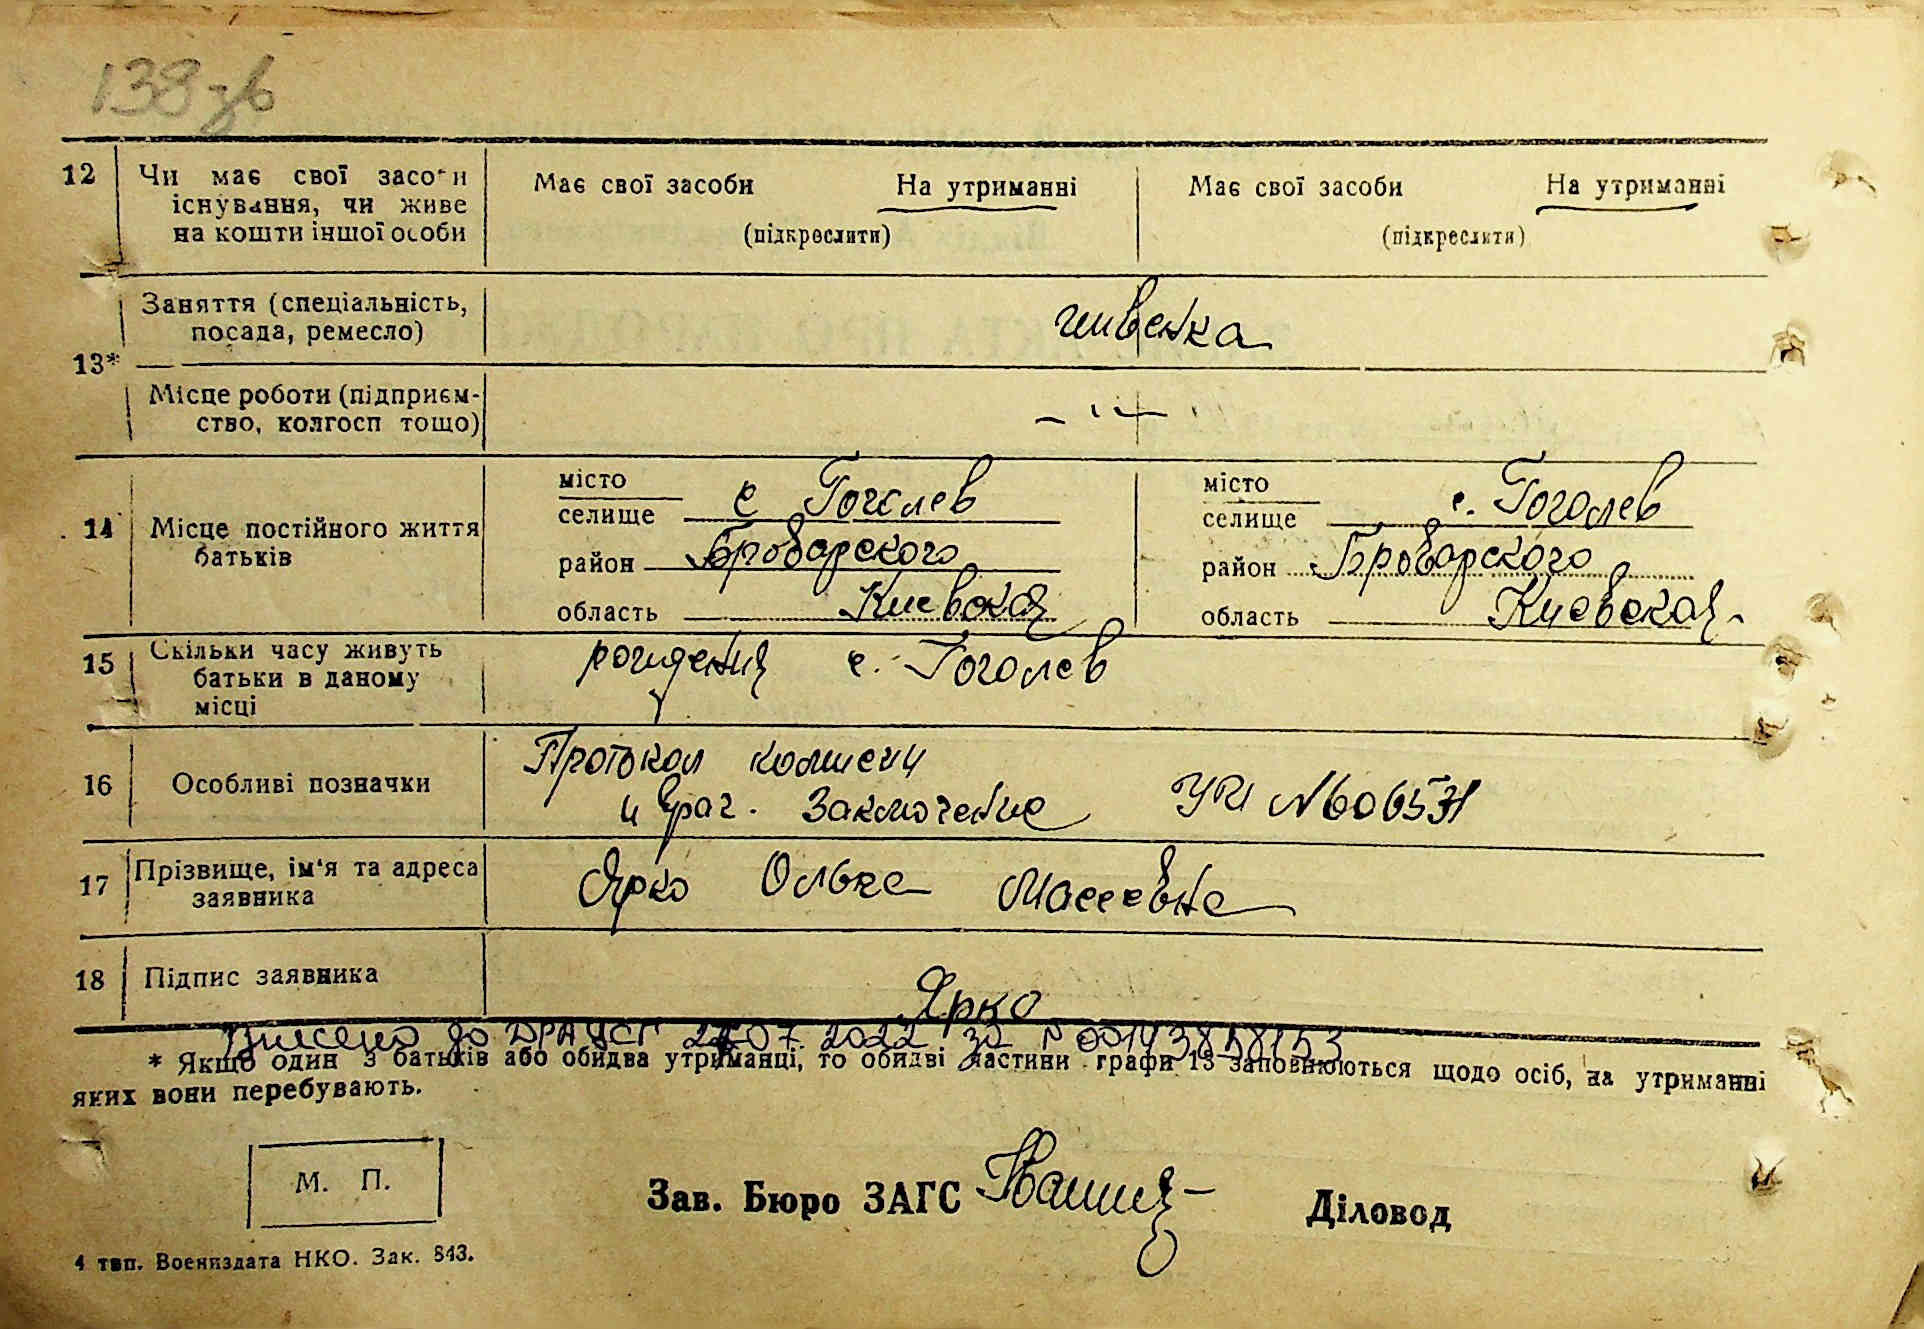 138зв
12 Чи має свої засоби існування, чи живе на кошти іншої особи
Має свої засоби На утриманні
(підкреслити)
Має свої засоби На утриманні
(підкреслити)
13*
Заняття (спеціальність, посада, ремесло)
швейка
Місце роботи (підприємство, колгосп тощо)
— " —
14 Місце постійного життя батьків
місто
селище с Гоголев
район Броварского
область Киевская
місто
селище с. Гоголев
район Броварского
область Киевская
15 Скільки часу живуть батьки в даному місці
рождения с. Гоголев
16 Особливі позначки
Протокол комисии
и Врач. Заключение УЯ № 606531
17 Прізвище, ім'я та адреса заявника
Ярко Ольга Моесевна
18 Підпис заявника
Ярко
Внесено до ДРАЦСГ 07.2022 за N 00143858153
* Якщо один з батьків або обидва утриманці, то обидві частини графи 13 заповнюються щодо осіб, на утриманні
яких вони перебувають.
М. П.
Зав. Бюро ЗАГС
Діловод
4 тип. Воениздата НКО. Зак. 843.